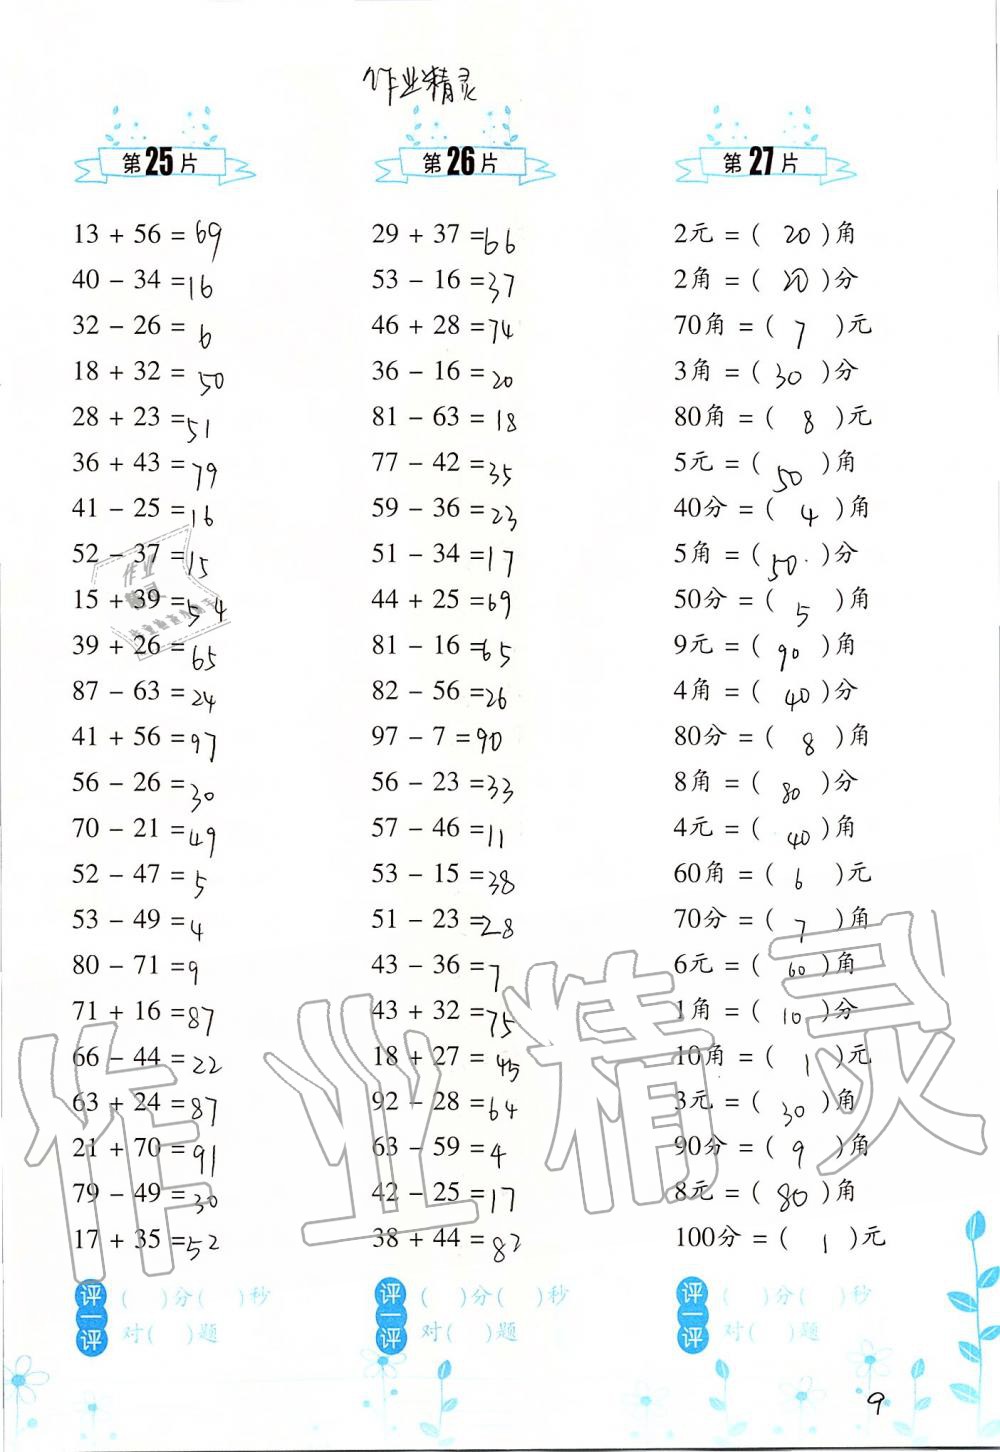 作业精灵
第25片
13 + 56 = 69
40 - 34 = 16
32 - 26 = 6
18 + 32 = 50
28 + 23 = 51
36 + 43 = 79
41 - 25 = 16
52 - 37 = 15
15 + 39 = 54
39 + 26 = 65
87 - 63 = 24
41 + 56 = 97
56 - 26 = 30
70 - 21 = 49
52 - 47 = 5
53 - 49 = 4
80 - 71 = 9
71 + 16 = 87
66 - 44 = 22
63 + 24 = 87
21 + 70 = 91
79 - 49 = 30
17 + 35 = 52
评一评
( )分( )秒
对( )题
第26片
29 + 37 = 66
53 - 16 = 37
46 + 28 = 74
36 - 16 = 20
81 - 63 = 18
77 - 42 = 35
59 - 36 = 23
51 - 34 = 17
44 + 25 = 69
81 - 16 = 65
82 - 56 = 26
97 - 7 = 90
56 - 23 = 33
57 - 46 = 11
53 - 15 = 38
51 - 23 = 28
43 - 36 = 7
43 + 32 = 75
18 + 27 = 45
92 - 28 = 64
63 - 59 = 4
42 - 25 = 17
38 + 44 = 82
评一评
( )分( )秒
对( )题
第27片
2元 = ( 20 )角
2角 = ( 20 )分
70角 = ( 7 )元
3角 = ( 30 )分
80角 = ( 8 )元
5元 = ( 50 )角
40分 = ( 4 )角
5角 = ( 50 )分
50分 = ( 5 )角
9元 = ( 90 )角
4角 = ( 40 )分
80分 = ( 8 )角
8角 = ( 80 )分
4元 = ( 40 )角
60角 = ( 6 )元
70分 = ( 7 )角
6元 = ( 60 )角
1角 = ( 10 )分
10角 = ( 1 )元
3元 = ( 30 )角
90分 = ( 9 )角
8元 = ( 80 )角
100分 = ( 1 )元
评一评
( )分( )秒
对( )题
作业精灵
9